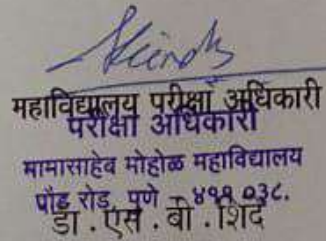 महाविद्यालय परीक्षा अधिकारी
परीक्षा अधिकारी
मामासाहेब मोहोळ महाविद्यालय
पौड रोड, पुणे - ४११ ०३८.
डॉ . एस . बी . शिंदे